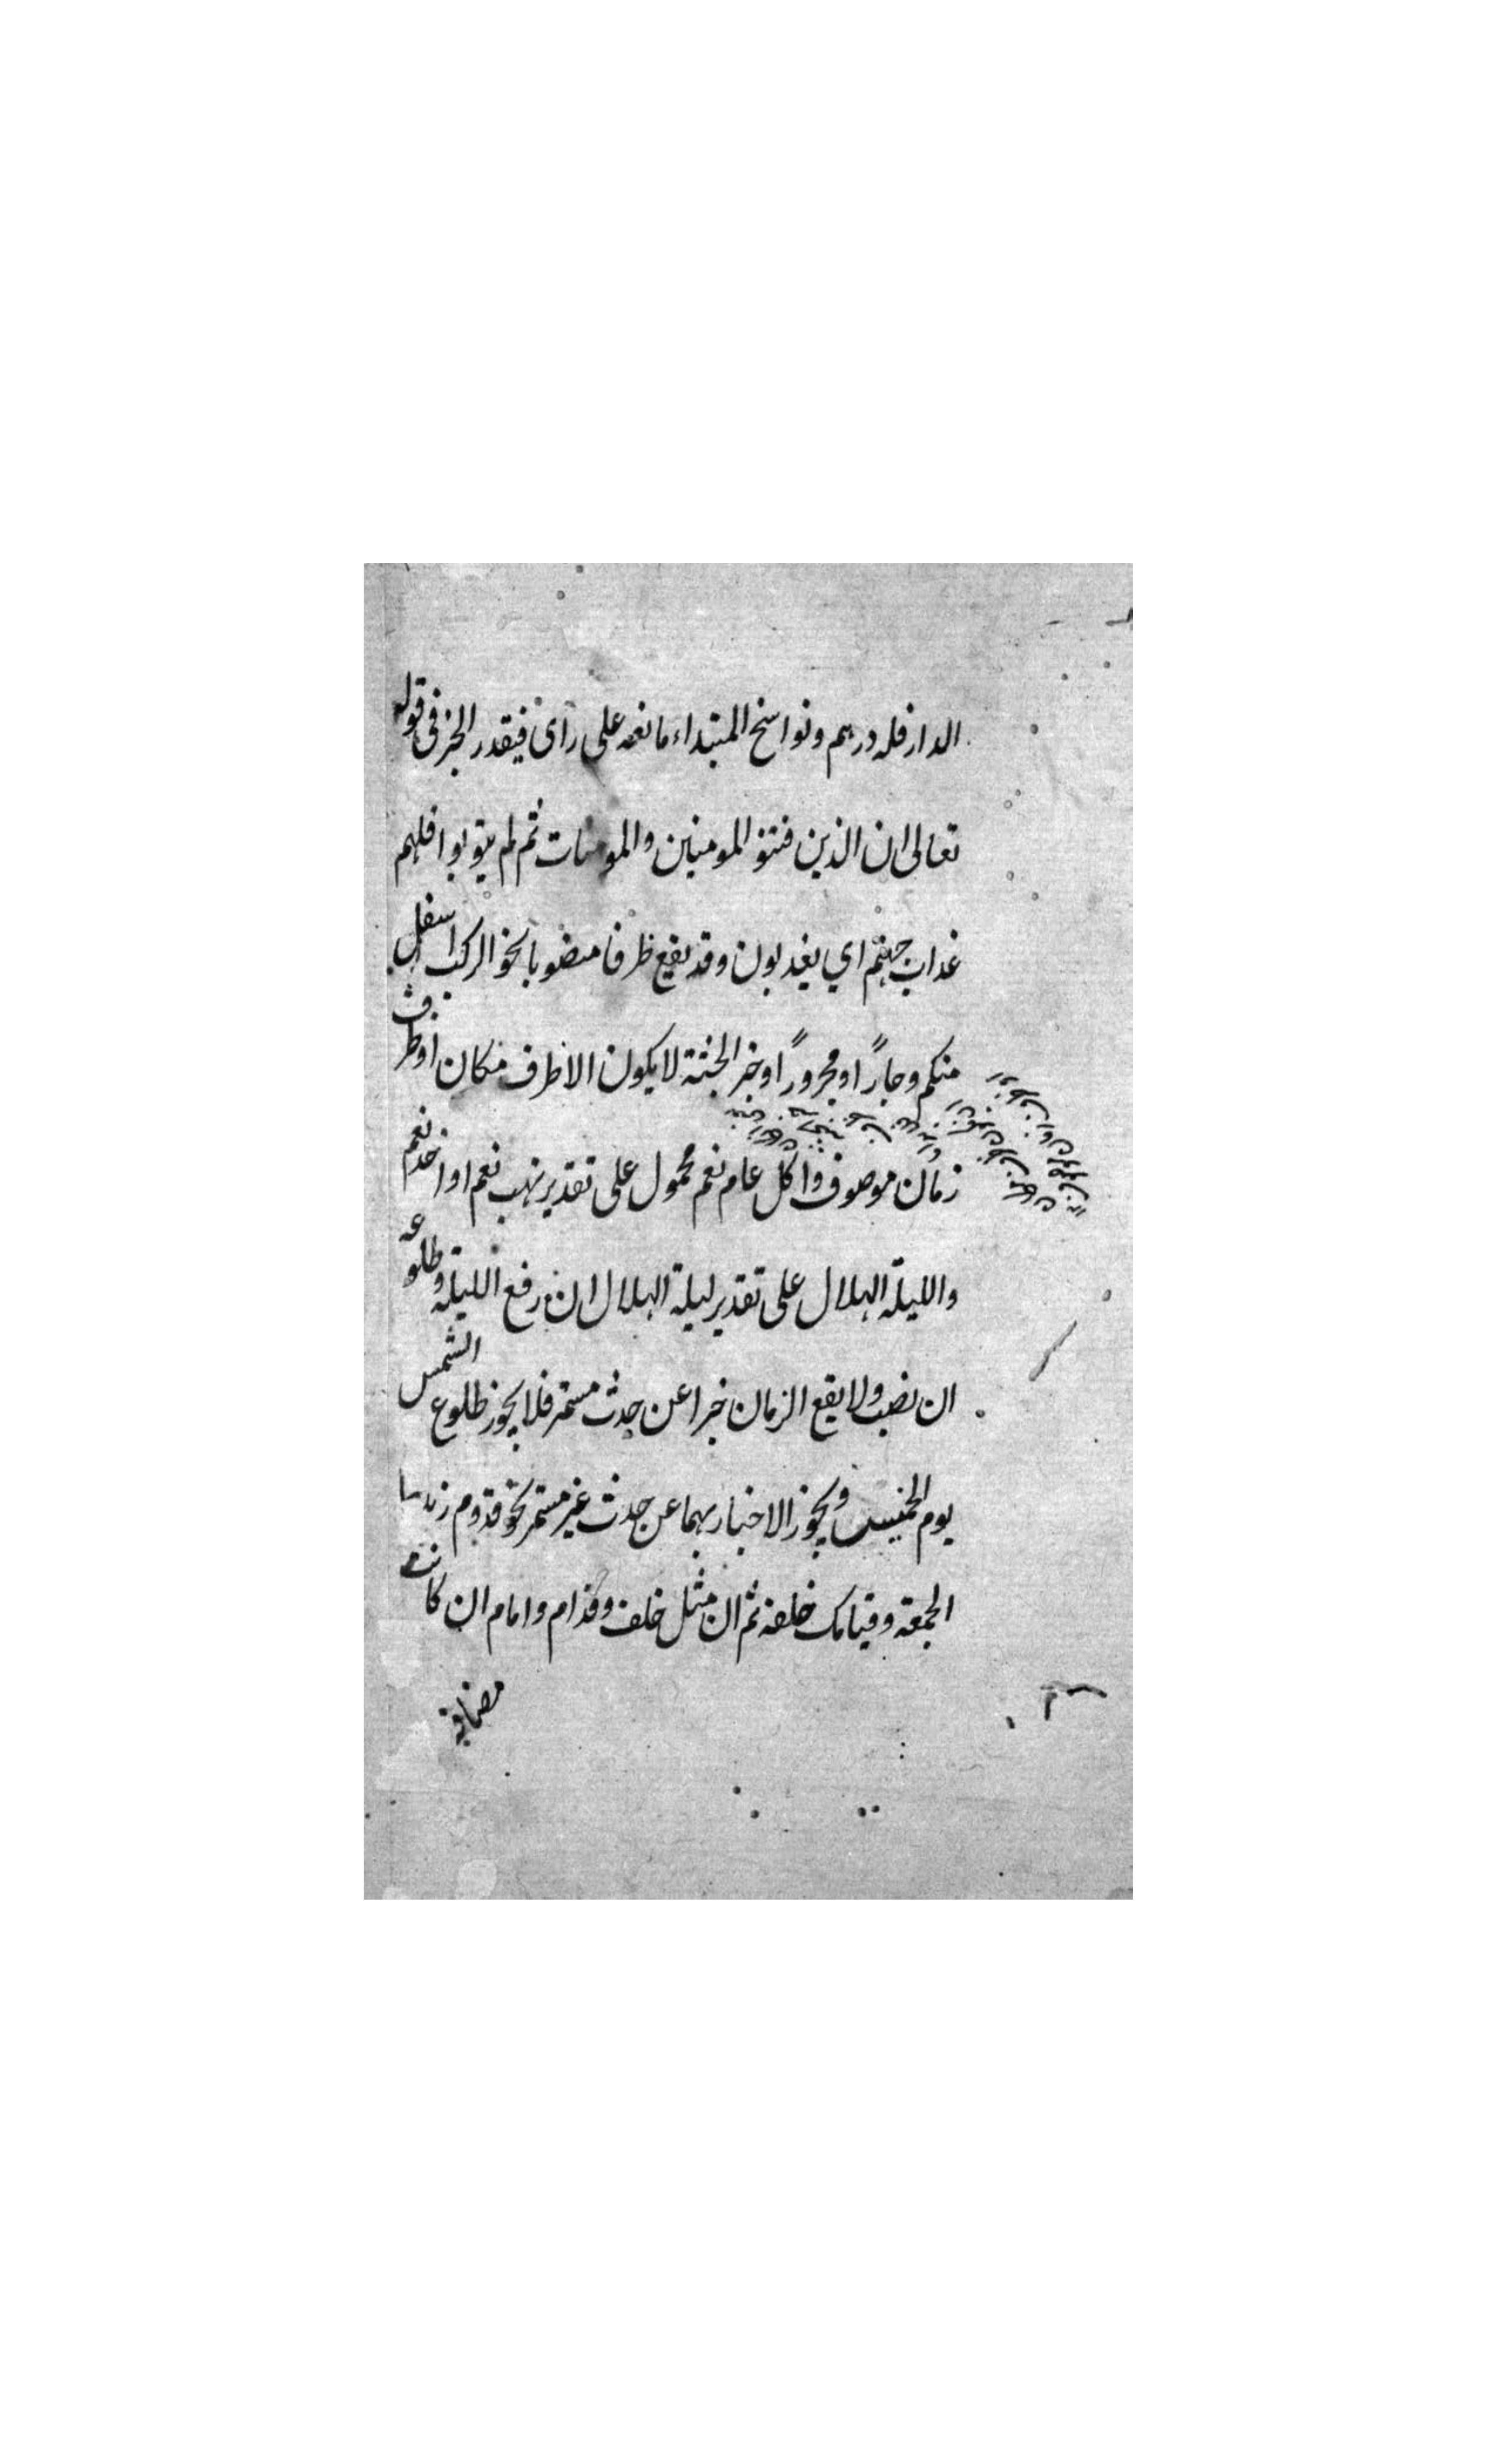 الدار فله درهم ونواسخ المبتداء مانعه على رأى فيقدر الخبر فى قوله
تعالى ان الذين فتنو المومنين والمومنات ثم لم يتوبوا فلهم
عذاب جهنم اي يعذبون وقد يقع ظرفا منصوبا نحو الركب اسفل
منكم وجارًا ومجرورًا وخبر الجثة لا يكون الا ظرف مكان او ظرف
زمان موصوف واكل عام نعم محمول على تقدير نهب نعم او اخذ نعم
والليلة الهلال على تقدير ليلة الهلال ان رفع الليلة وطلوعه
ان نصب ولا يقع الزمان خبرا عن حدث مستمر فلا يجوز طلوع الشمس
يوم الخميس ويجوز الاخبار بهما عن حدث غير مستمر نحو قدوم زيد
الجمعة وقيامك خلفه ثم ان مثل خلف وقدام وامام ان كانت
مضافة